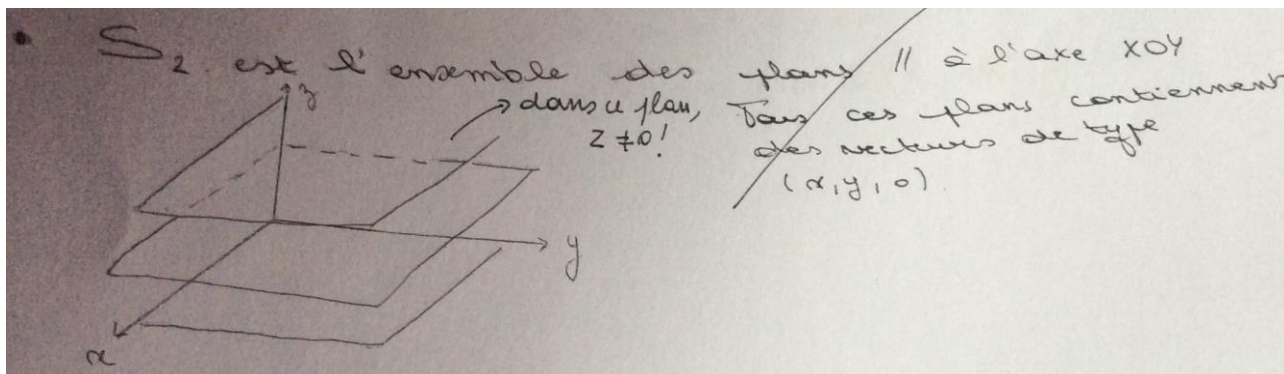 • S2 est l'ensemble des plans // à l'axe XOY
z
→ dans ce plan, Tous ces plans contiennent
Z ≠ 0! des vecteurs de type
(x, y, 0)
y
x